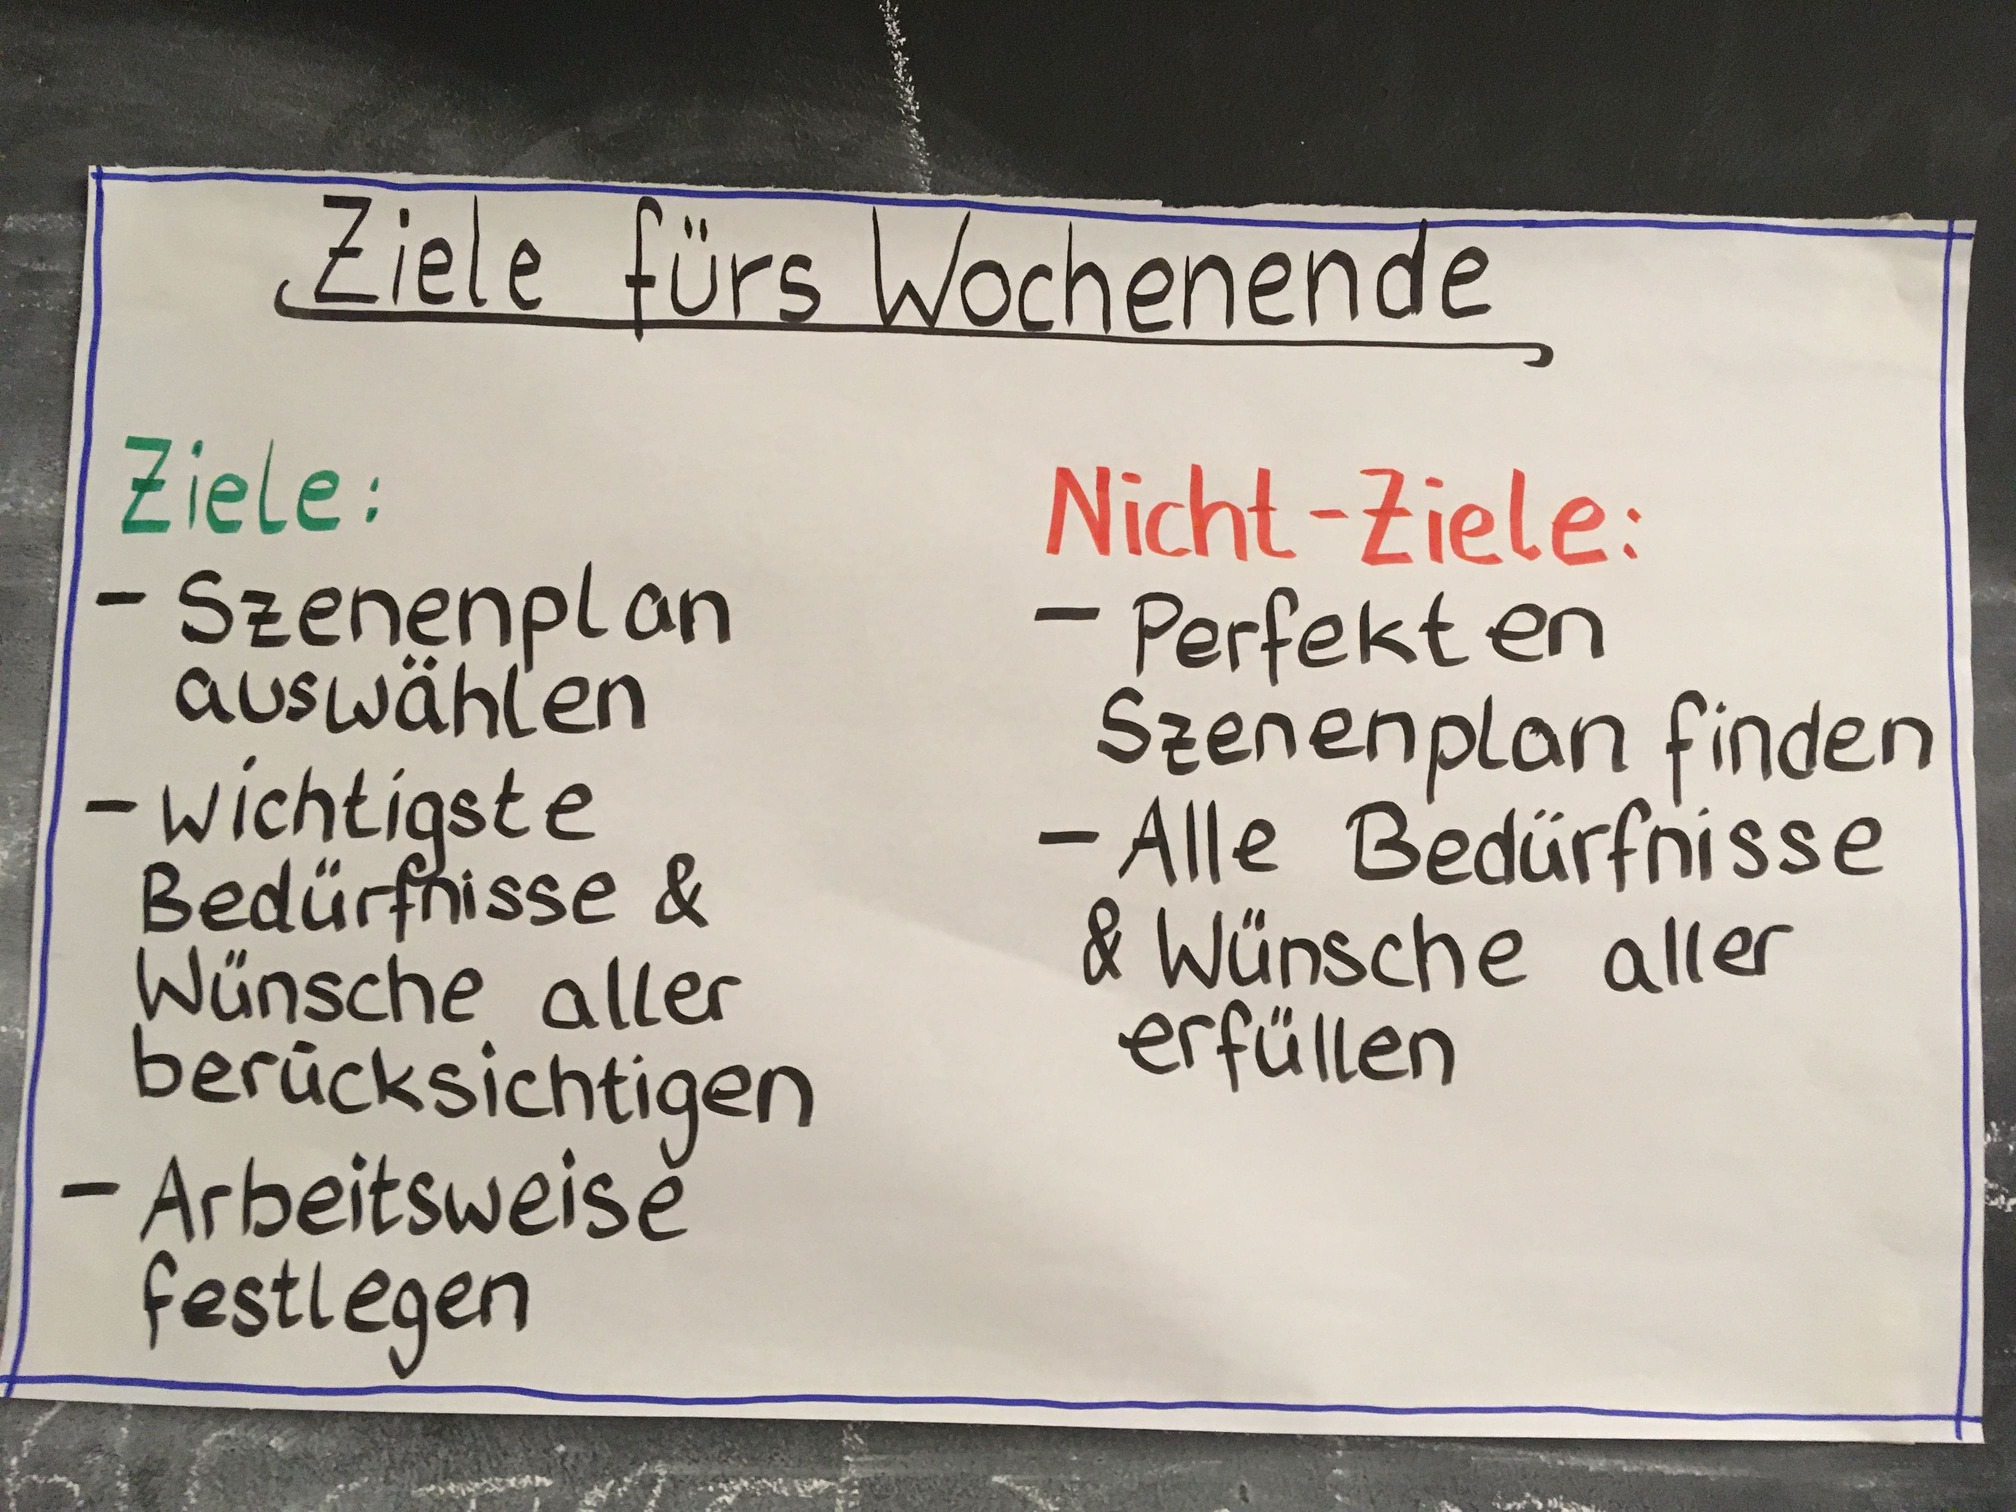 Ziele fürs Wochenende
Ziele:
- Szenenplan
auswählen
- wichtigste
Bedürfnisse &
Wünsche aller
berücksichtigen
- Arbeitsweise
festlegen
Nicht-Ziele:
- Perfekten
Szenenplan finden
- Alle Bedürfnisse
& Wünsche aller
erfüllen